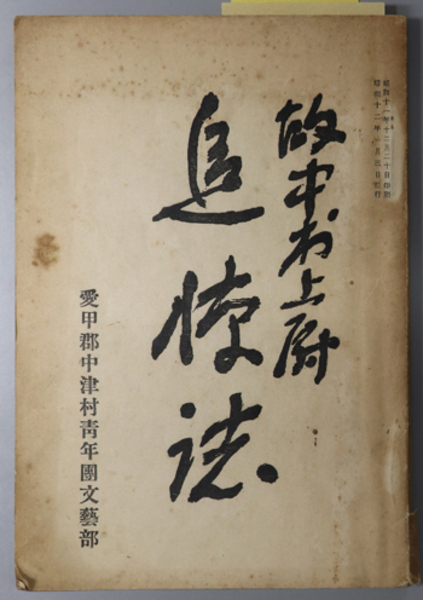 昭和十一年十二月二十日印刷
昭和十二年一月三日發行
故中村上尉
追悼誌
愛甲郡中津村青年團文藝部